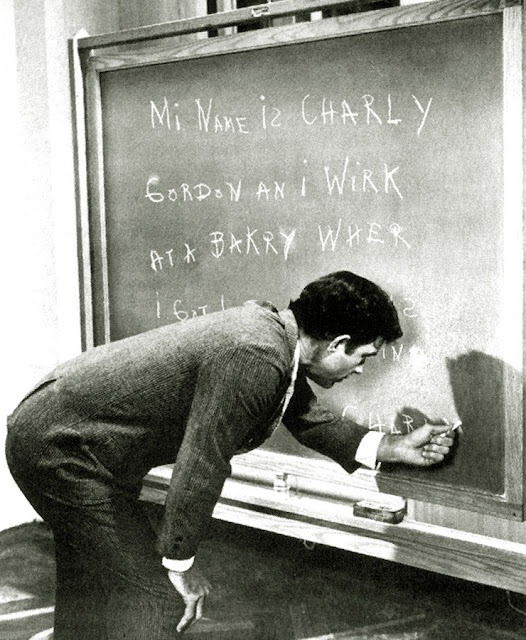 Mi NAME iz CHARLY
GORDON AN i WiRK
AT A BAKRY WHER
i GOT
CHAR